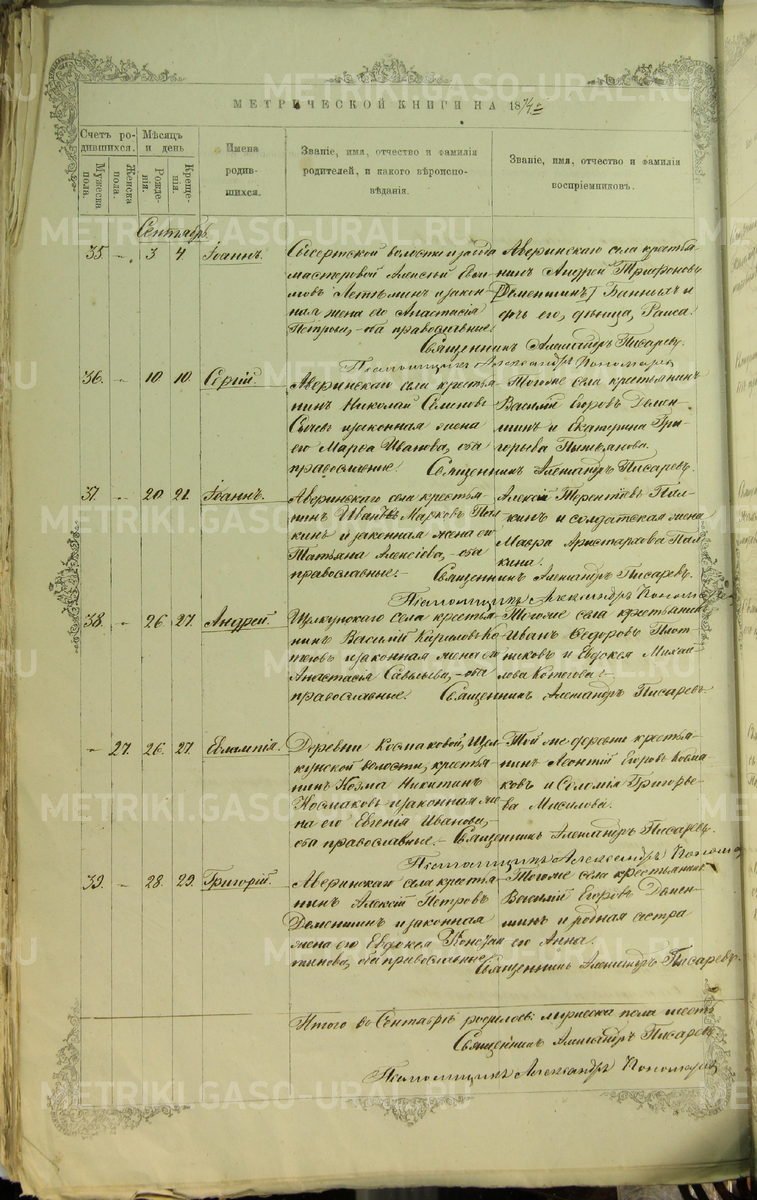 МЕТРИЧЕСКОЙ КНИГИ НА 1874 г.
Счетъ ро-
дившихся.
Мужеска
пола.
Женска
пола.
Мѣсяцъ
и день
Рожде-
нія.
Креще-
нія.
Имена
родив-
шихся.
Званіе, имя, отчество и фамилія
родителей, и какого вѣроиспо-
вѣданія.
Званіе, имя, отчество и фамилія
воспріемниковъ.
Сентябрь.
35 „ 3 4 Іоаннъ.
Сысертской волости
мастеровой Алексей
Летѣминъ и закон-
ная жена его Анастасія
Петрова, оба православные.
Аверинскаго села кресть-
янинъ Андрей Трифоновъ
[Дементинъ]
его, дѣвица, Раиса.
Священникъ Александръ Писаревъ.
Александръ Пономаревъ
36. „ 10 10. Сергій.
Аверинскаго села крестья-
нинъ Николай Семеновъ
и законная жена
его Марѳа Иванова, оба
православные.
Тогоже села крестьянинъ
Василій Егоровъ Демен-
тинъ и Екатерина Гри-
горьева
Священникъ Александръ Писаревъ.
37. „ 20 21. Іоаннъ.
Аверинскаго села крестья-
нинъ Иванъ Марковъ Пал-
кинъ и законная жена его
Татьяна Алексіева, оба
православные.
Алексѣй Терентіевъ Пал-
кинъ и солдатская жена
Мавра Аристархова Пал-
кина.
Священникъ Александръ Писаревъ.
Александръ Пономаревъ
38. „ 26 27. Андрей.
Щелкунскаго села крестья-
нинъ Василій Кириловъ
и законная жена его
Анастасія Савельева, оба
православные.
Тогоже села крестьянинъ
Иванъ Ѳедоровъ Плот-
никовъ и Евдокея Михай-
лова
Священникъ Александръ Писаревъ.
„ 27. 26. 27. Евлампія.
Деревни Космаковой, Щел-
кунской волости, крестья-
нинъ Козма Никитинъ
Космаковъ и законная же-
на его Евгенія Иванова,
оба православные.
Той же деревни крестья-
нинъ Леонтій Егоровъ Косма-
ковъ и Соломія Григорье-
ва
Священникъ Александръ Писаревъ.
Александръ Пономаревъ
39. „ 28. 29. Григорій.
Аверинскаго села крестья-
нинъ Алексѣй Петровъ
Дементинъ и законная
жена его Евдокея Констан-
тинова, оба православные.
Тогоже села крестьянинъ
Василій Егоровъ Демен-
тинъ и родная сестра
его Анна.
Священникъ Александръ Писаревъ.
Итого въ Сентябрѣ родилось: мужеска пола
Священникъ Александръ Писаревъ
Александръ Пономаревъ
METRIKI.GASO-URAL.RU